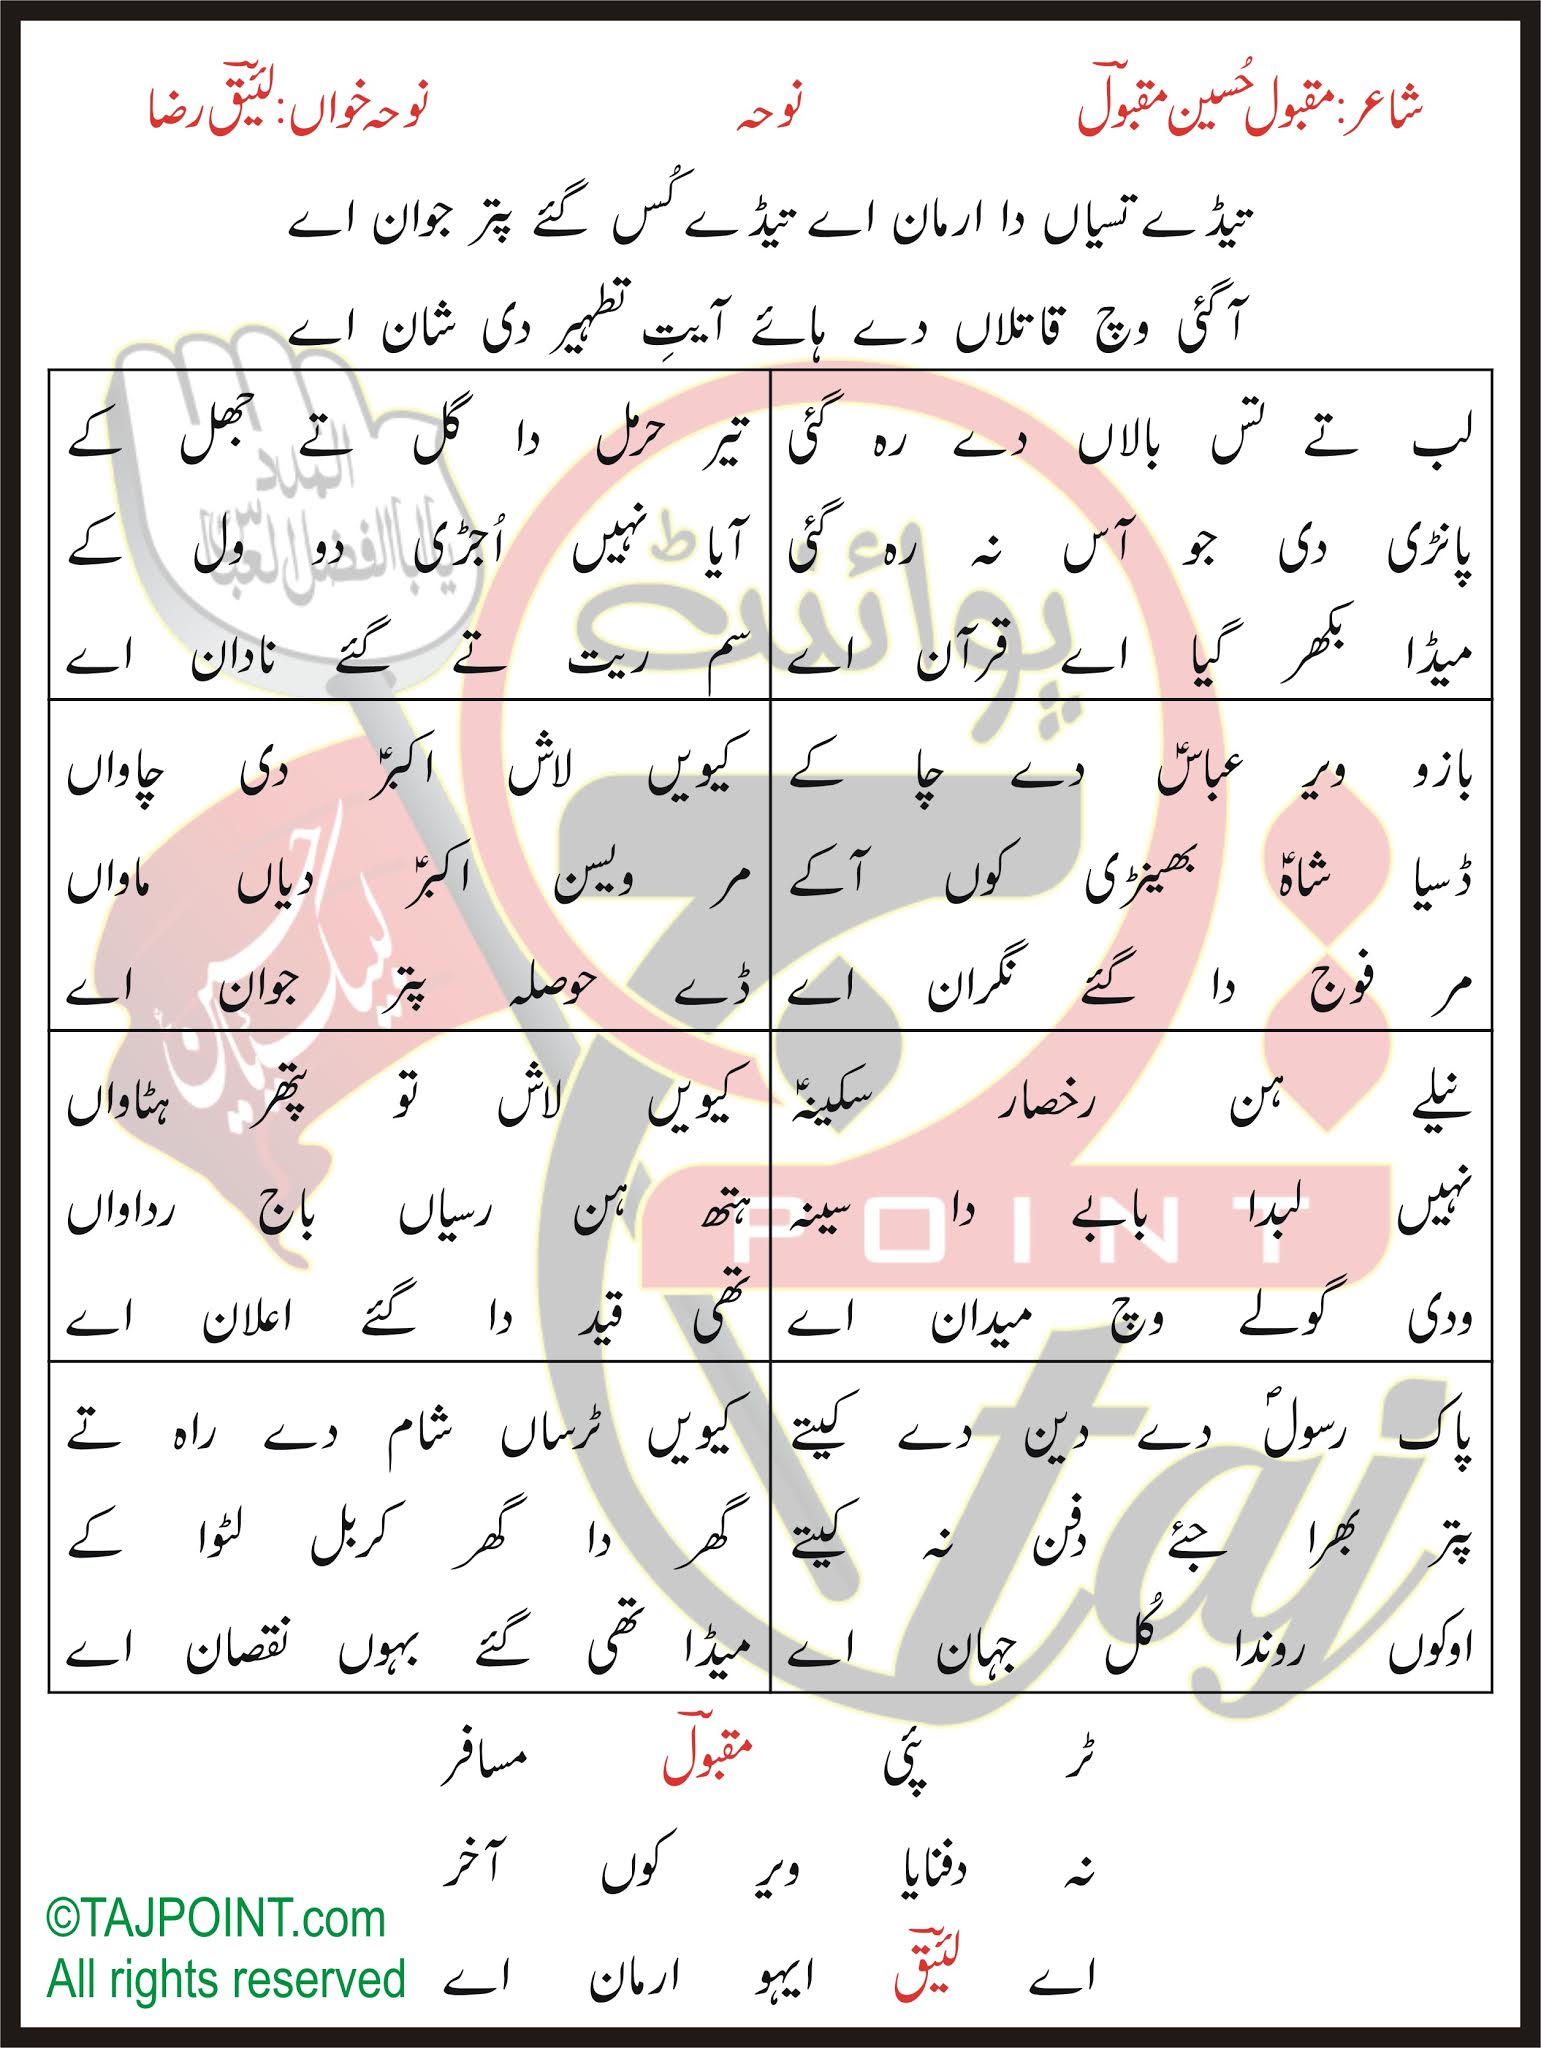 شاعر: مقبول حُسین مقبولؔ
نوحہ
نوحہ خواں: لئیقؔ رضا
تیڈے تسیاں دا ارمان اے تیڈے کُس گئے پتر جوان اے
آ گئی وچ قاتلاں دے ہائے آیتِ تطہیر دی شان اے
لب تے تس بالاں دے رہ گئی
پانڑی دی جو آس نہ رہ گئی
میڈا بکھر گیا اے قرآن اے
تیر حرمل دا گل تے جھل کے
آیا نہیں اُجڑی دو ول کے
سم ریت تے گئے نادان اے
بازو ویر عباسؑ دے چا کے
ڈسیا شاہؑ بھینڑی کوں آکے
مر فوج دا گئے نگران اے
کیویں لاش اکبرؑ دی چاواں
مر ویسن اکبرؑ دیاں ماواں
ڈے حوصلہ پتر جوان اے
نیلے ہن رخصار سکینہؑ
نہیں لبدا بابے دا سینہ
ودی گولے وچ میدان اے
کیویں لاش تو پتھر ہٹاواں
ہتھ ہن رسیاں باج رداواں
تھی قید دا گئے اعلان اے
پاک رسولؐ دے دین دے کیتے
پتر بھرا جئے دفن نہ کیتے
اوکوں روندا کُل جہان اے
کیویں ٹرساں شام دے راہ تے
گھر دا گھر کربل لٹوا کے
میڈا تھی گئے بہوں نقصان اے
ٹر پئی مقبولؔ مسافر
نہ دفنایا ویر کوں آخر
اے لئیقؔ ایہو ارمان اے
©TAJPOINT.com
All rights reserved
پوائنٹ
تاج
POINT
taj
المدد
یا ابا الفضل العباسؑ
لبیک یا حسینؑ